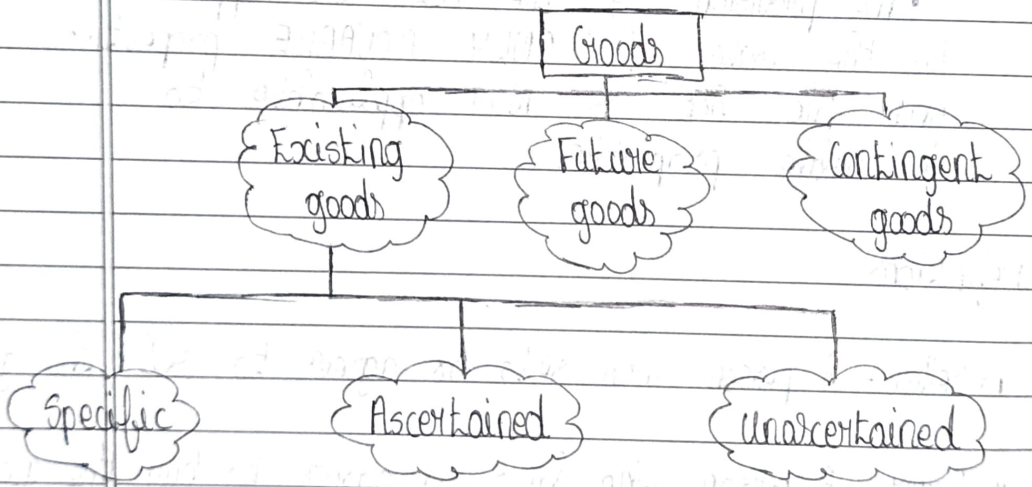 Goods
Existing
goods
Future
goods
Contingent
goods
Specific
Ascertained
Unascertained